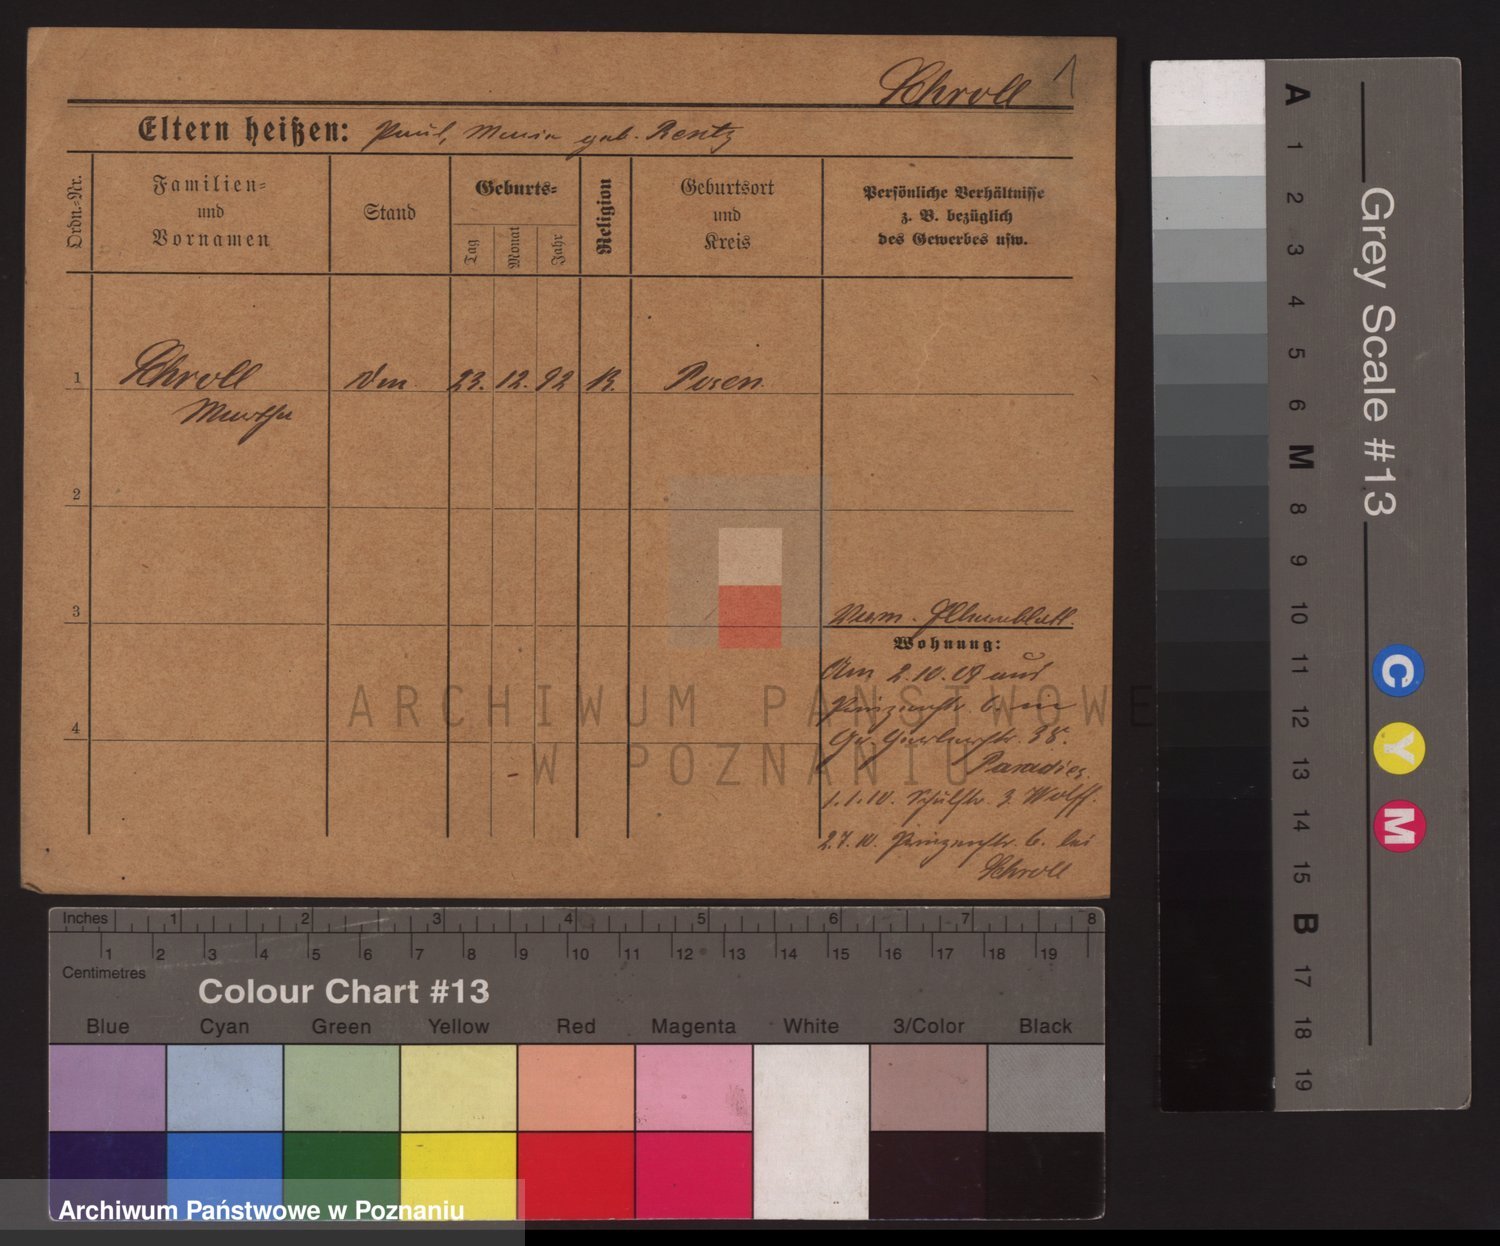 Schroll 1
Eltern heißen: Paul, Maria geb. Rentz
Ordn.-Nr.
Familien-
und
Vornamen
Stand
Geburts-
Tag
Monat
Jahr
Religion
Geburtsort
und
Kreis
Persönliche Verhältnisse
z. B. bezüglich
des Gewerbes usw.
1 Schroll 23. 12. 92 Posen.
Martha
2
3
Wohnung:
Am 2.10.09 aus
Prinzenstr. 6. in
Gr. Gerberstr. 38.
4
Paradies.
1.1.10. Schulstr. 3. Wolff.
2.7.10. Prinzenstr. 6. bei
Schroll
ARCHIWUM PAŃSTWOWE
W POZNANIU
Inches 1 2 3 4 5 6 7 8
1 2 3 4 5 6 7 8 9 10 11 12 13 14 15 16 17 18 19
Centimetres
Colour Chart #13
Blue Cyan Green Yellow Red Magenta White 3/Color Black
Archiwum Państwowe w Poznaniu
Grey Scale #13
A 1 2 3 4 5 6 M 8 9 10 11 12 13 14 15 B 17 18 19
C Y M